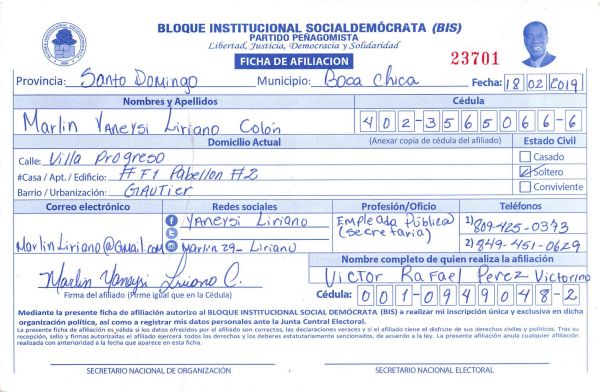 BLOQUE INSTITUCIONAL SOCIALDEMÓCRATA (BIS)
PARTIDO PEÑAGOMISTA
Libertad, Justicia, Democracia y Solidaridad
FICHA DE AFILIACION
23701
Provincia: Santo Domingo Municipio: Boca Chica Fecha: 18 02 2019
Nombres y Apellidos Cédula
Marlin Yaneysi Liriano Colón 402-3565066-6
Domicilio Actual (Anexar copia de cédula del afiliado) Estado Civil
Calle: Villa Progreso Casado
#Casa / Apt. / Edificio: #F1 Pabellon #2 Soltero
Barrio / Urbanización: GAUTIER Conviviente
Correo electrónico Redes sociales Profesión/Oficio Teléfonos
Yaneysi Liriano Empleada Pública 1) 809-425-0373
MarlinLiriano@Gmail.com Marlin 29_ Liriano (secretaria) 2) 849-451-0629
Nombre completo de quien realiza la afiliación
Marlin Yaneysi Liriano C. Victor Rafael Perez Victorino
Firma del afiliado (Firme igual que en la Cédula) Cédula: 001-0949048-2
Mediante la presente ficha de afiliación autorizo al BLOQUE INSTITUCIONAL SOCIAL DEMÓCRATA (BIS) a realizar mi inscripción única y exclusiva en dicha
organización política, así como a registrar mis datos personales ante la Junta Central Electoral.
La presente ficha de afiliación es válida si los datos ofrecidos por el afiliado son correctos, las declaraciones veraces y si el afiliado tiene el disfrute de sus derechos civiles y políticos. Tras su
recepción, sello y firmas autorizadas el afiliado ejercerá todos los derechos y los deberes estatutariamente sancionados, de acuerdo a la ley. La presente afiliación anula cualquier afiliación
realizada con anterioridad a la fecha que aparece en esta ficha.
SECRETARIO NACIONAL DE ORGANIZACIÓN SECRETARIO NACIONAL ELECTORAL